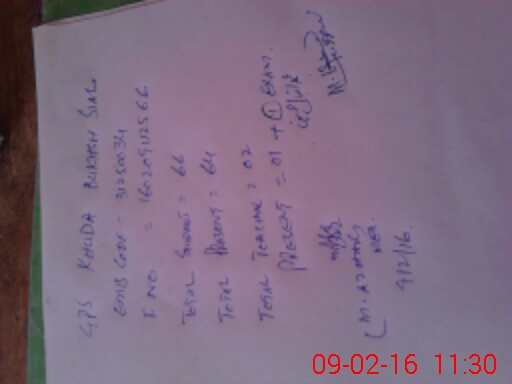 GPS KHUDA BUKHSH SIAL
EMIS CODE - 31250034
I NO = 160209112566
TOTAL STUDENT = 66
TOTAL PRESENT = 64
TOTAL TEACHER = 02
PRESENT = 01 + 1 EXAM.
MEA.
9/2/16.
09-02-16 11:30